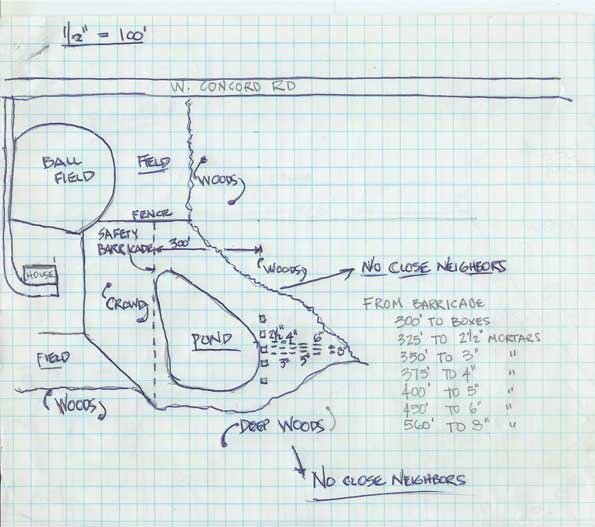 1/2" = 100'
W. CONCORD RD
BALL
FIELD
FIELD
WOODS
FENCE
SAFETY
BARRICADE
300'
WOODS
NO CLOSE NEIGHBORS
HOUSE
CROWD
POND
2 1/2" 4" 6"
3" 5" 8"
FIELD
WOODS
DEEP WOODS
NO CLOSE NEIGHBORS
FROM BARRICADE
300' TO BOXES
325' TO 2 1/2" MORTARS
350' TO 3" "
375' TO 4" "
400' TO 5" "
450' TO 6" "
560' TO 8" "